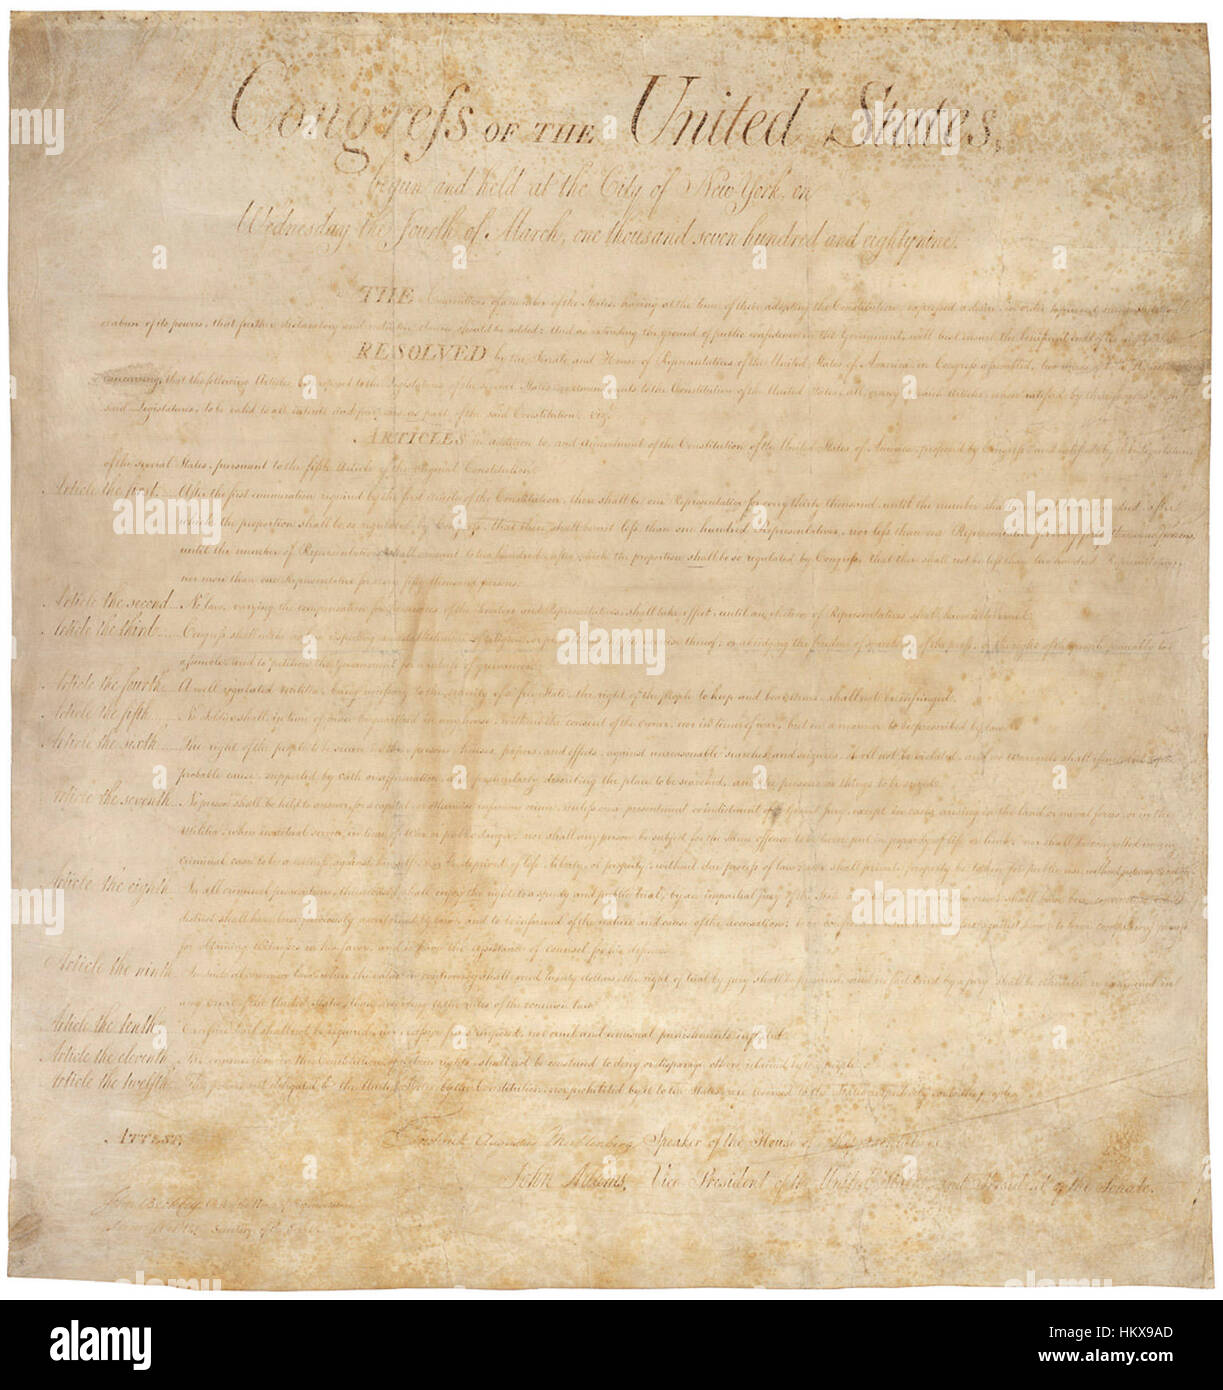 Congreſs OF THE United States,
begun and held at the City of New York, on
Wednesday the Fourth of March, one thousand seven hundred and eighty nine.
THE Conventions of a number of the States, having at the time of their adopting the Constitution, expressed a desire, in order to prevent misconstruction
or abuse of its powers, that further declaratory and restrictive clauses should be added: And as extending the ground of public confidence in the Government, will best ensure the beneficent ends of its
RESOLVED by the Senate and House of Representatives of the United States of America in Congreſs aſsembled, two thirds of both Houses
concurring, that the following Articles be proposed to the Legislatures of the several States, as amendments to the Constitution of the United States, all, or any of which Articles, when ratified by three fourths of the
said Legislatures, to be valid to all intents and purposes, as part of the said Constitution, Viz.
ARTICLES in addition to, and Amendment of the Constitution of the United States of America, proposed by Congreſs and ratified by the Legislatures
of the several States, pursuant to the fifth Article of the Original Constitution.
Article the first. After the first enumeration required by the first Article of the Constitution, there shall be one Representative for every thirty thousand, until the number shall amount to one hundred, after
which, the proportion shall be so regulated by Congreſs, that there shall be not leſs than one hundred Representatives, nor leſs than one Representative for every forty thousand persons,
until the number of Representatives shall amount to two hundred, after which the proportion shall be so regulated by Congreſs, that there shall not be leſs than two hundred Representatives,
nor more than one Representative for every fifty thousand persons.
Article the second. No law, varying the compensation for the services of the Senators and Representatives, shall take effect, until an election of Representatives shall have intervened.
Article the third. Congreſs shall make no law respecting an establishment of religion, or prohibiting the free exercise thereof; or abridging the freedom of speech, or of the preſs; or the right of the people peaceably to
aſsemble, and to petition the Government for a redreſs of grievances.
Article the fourth. A well regulated militia, being neceſsary to the security of a free State, the right of the people to keep and bear arms, shall not be infringed.
Article the fifth. No Soldier shall, in time of peace be quartered in any house, without the consent of the owner, nor in time of war, but in a manner to be prescribed by law.
Article the sixth. The right of the people to be secure in their persons, houses, papers, and effects, against unreasonable searches and seizures, shall not be violated, and no warrants shall iſsue, but upon
probable cause, supported by oath or affirmation, and particularly describing the place to be searched, and the persons or things to be seized.
Article the seventh. No person shall be held to answer for a capital, or otherwise infamous crime, unleſs on a presentment or indictment of a Grand jury, except in cases arising in the land or naval forces, or in the
Militia, when in actual service in time of War or public danger; nor shall any person be subject for the same offence to be twice put in jeopardy of life or limb; nor shall be compelled in any
criminal case to be a witneſs against himself, nor be deprived of life, liberty, or property, without due proceſs of law; nor shall private property be taken for public use, without just compensation.
Article the eighth. In all criminal prosecutions, the accused shall enjoy the right to a speedy and public trial, by an impartial jury of the State and district wherein the crime shall have been committed, which
district shall have been previously ascertained by law, and to be informed of the nature and cause of the accusation; to be confronted with the witneſses against him; to have compulsory proceſs
for obtaining witneſses in his favor, and to have the aſsistance of counsel for his defence.
Article the ninth. In suits at common law, where the value in controversy shall exceed twenty dollars, the right of trial by jury shall be preserved, and no fact tried by a jury, shall be otherwise re-examined in
any Court of the United States, than according to the rules of the common law.
Article the tenth. Exceſsive bail shall not be required, nor exceſsive fines imposed, nor cruel and unusual punishments inflicted.
Article the eleventh. The enumeration in the Constitution, of certain rights, shall not be construed to deny or disparage others retained by the people.
Article the twelfth. The powers not delegated to the United States by the Constitution, nor prohibited by it to the States, are reserved to the States respectively, or to the people.
ATTEST,
Frederick Augustus Muhlenberg Speaker of the House of Representatives
John Adams, Vice President of the United States, and President of the Senate.
John Beckley
Secretary of the Senate
alamy
www.alamy.com
Image ID: HKX9AD